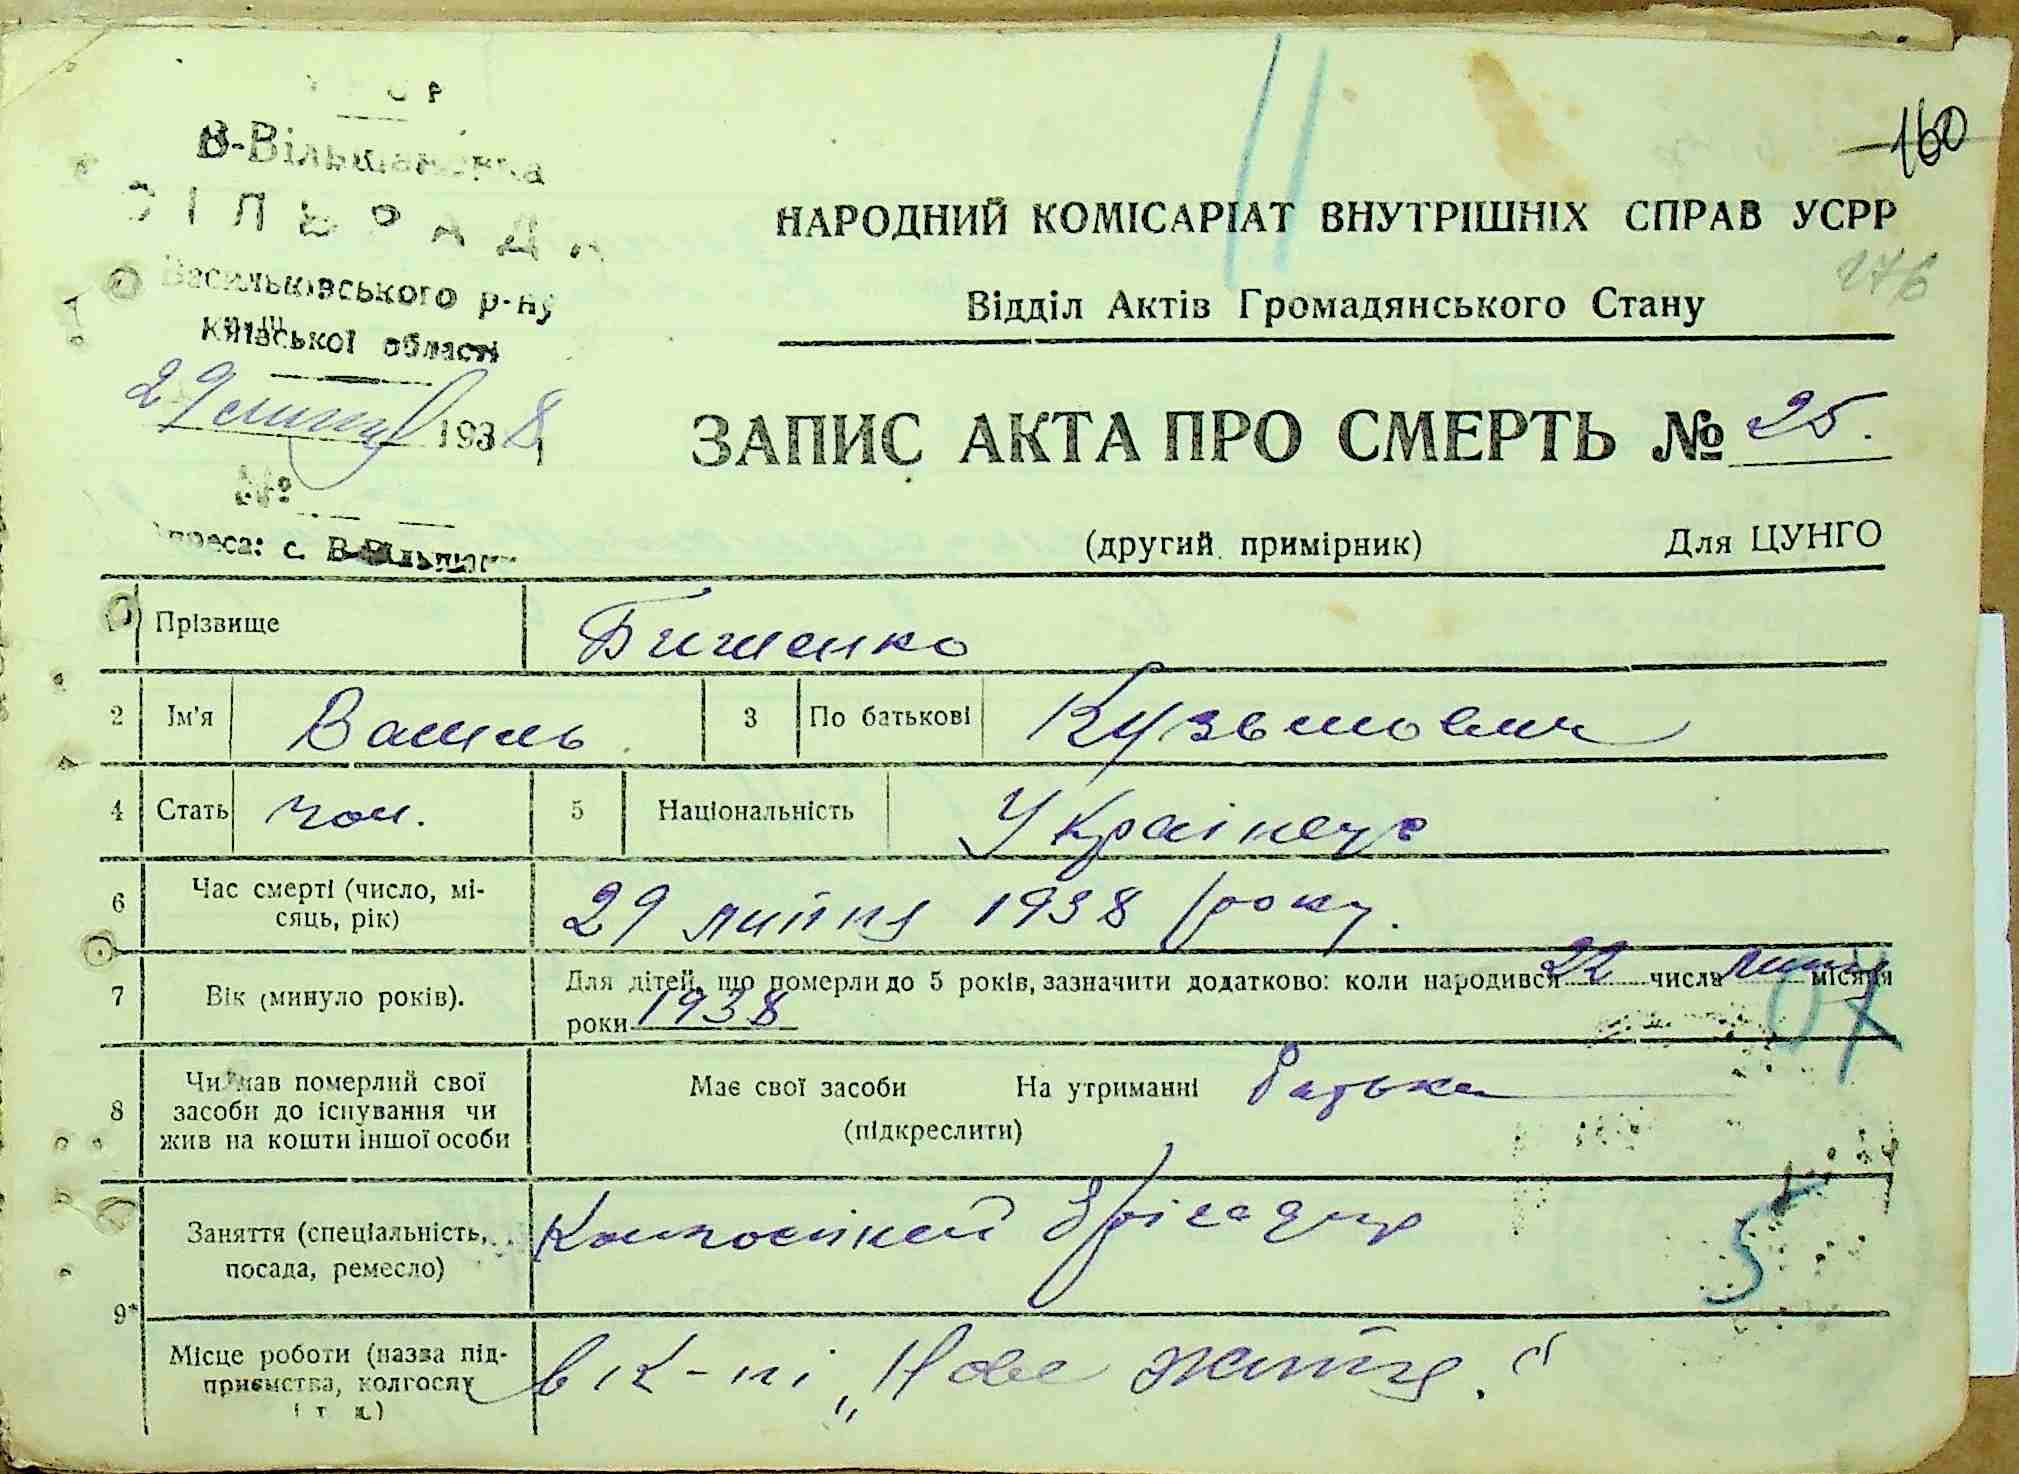 160
В-Вільшанська
СІЛЬРАДА
Васильківського р-ну
Київської області
29 липня 1938
№
Адреса: с. В-Вільшан
НАРОДНИЙ КОМІСАРІАТ ВНУТРІШНІХ СПРАВ УСРР
176
Відділ Актів Громадянського Стану
ЗАПИС АКТА ПРО СМЕРТЬ № 25.
(другий примірник) Для ЦУНГО
Прізвище
2 Ім'я Василь 3 По батькові Кузьмович
4 Стать чол. 5 Національність Українець
6 Час смерті (число, мі-
сяць, рік) 29 липня 1938 року.
7 Вік (минуло років). Для дітей, що померли до 5 років, зазначити додатково: коли народився 22 числа липня місяця
роки 1938
8 Чи мав померлий свої
засоби до існування чи
жив на кошти іншої особи
Має свої засоби На утриманні батька
(підкреслити)
9 Заняття (спеціальність,
посада, ремесло)
бригадир
5
Місце роботи (назва під-
приємства, колгоспу
і т. д.)
в к-пі „Нове життя."